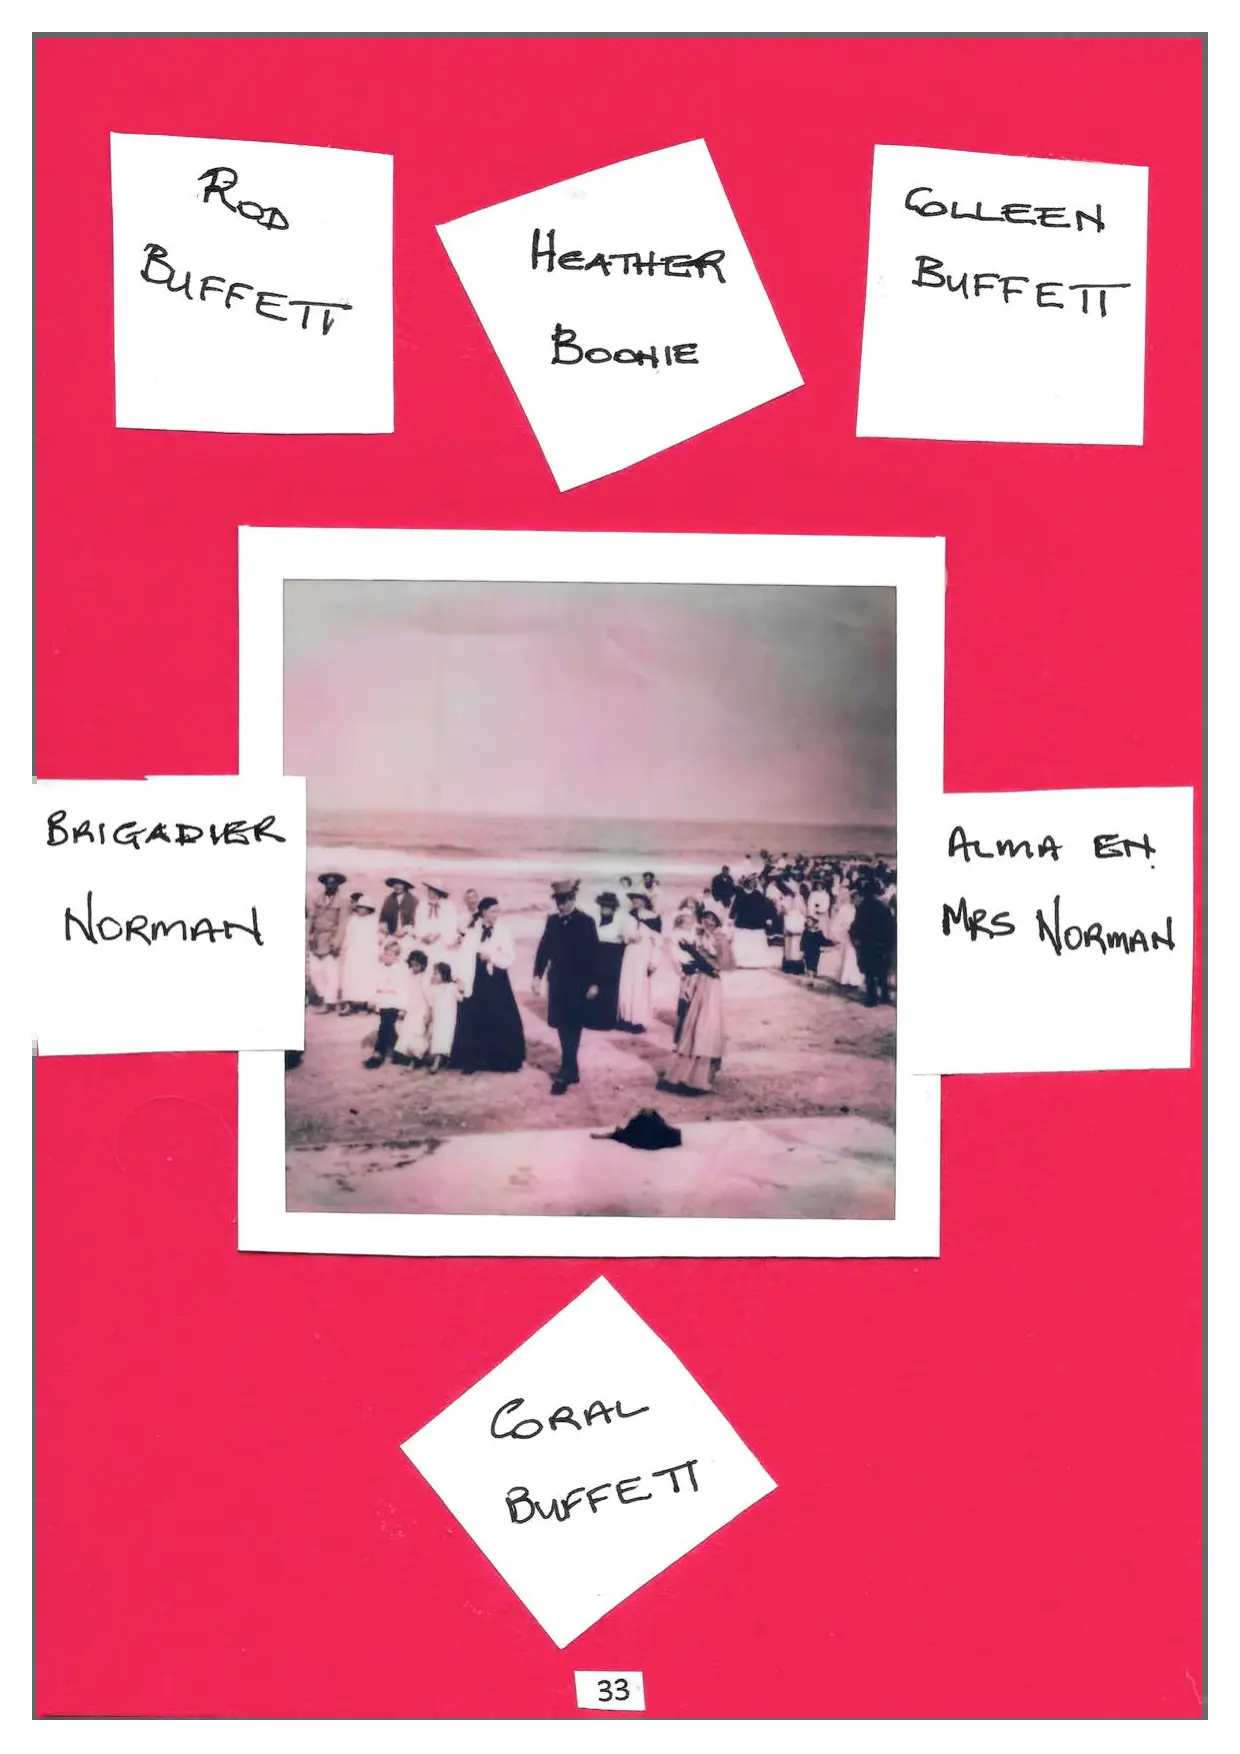 ROD
BUFFETT
HEATHER
BOONIE
COLLEEN
BUFFETT
BRIGADIER
NORMAN
ALMA EN
MRS NORMAN
CORAL
BUFFETT
33